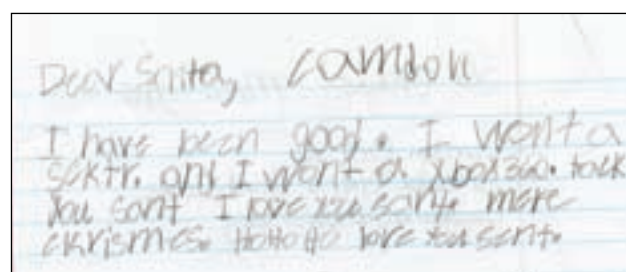 Dear Snita, Camdon
I have been good. I wont a
scktr. and I wont a xbox360. tack
you sant I love you sant. mere
ckrismes. HoHoHo love you sent.